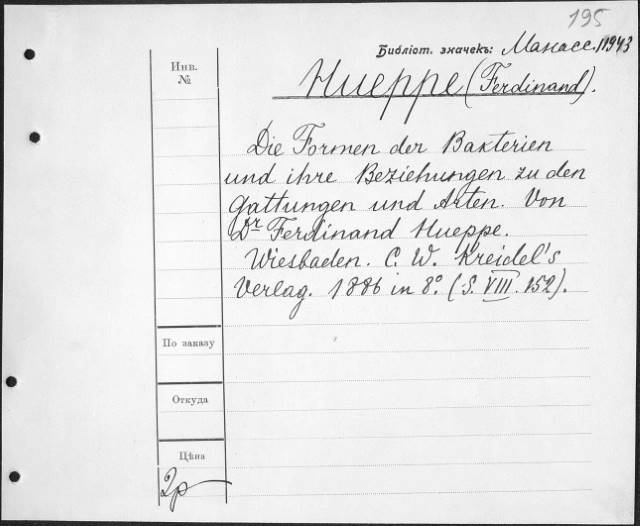 195
Библіот. значекъ: Манассе. 11943
Инв.
№
Hueppe (Ferdinand).
Die Formen der Bakterien
und ihre Beziehungen zu den
Gattungen und Arten. Von
Dr Ferdinand Hueppe.
Wiesbaden. C. W. Kreidel's
Verlag. 1886 in 8°. (S. VIII. 152).
По заказу
Откуда
Цѣна
2р